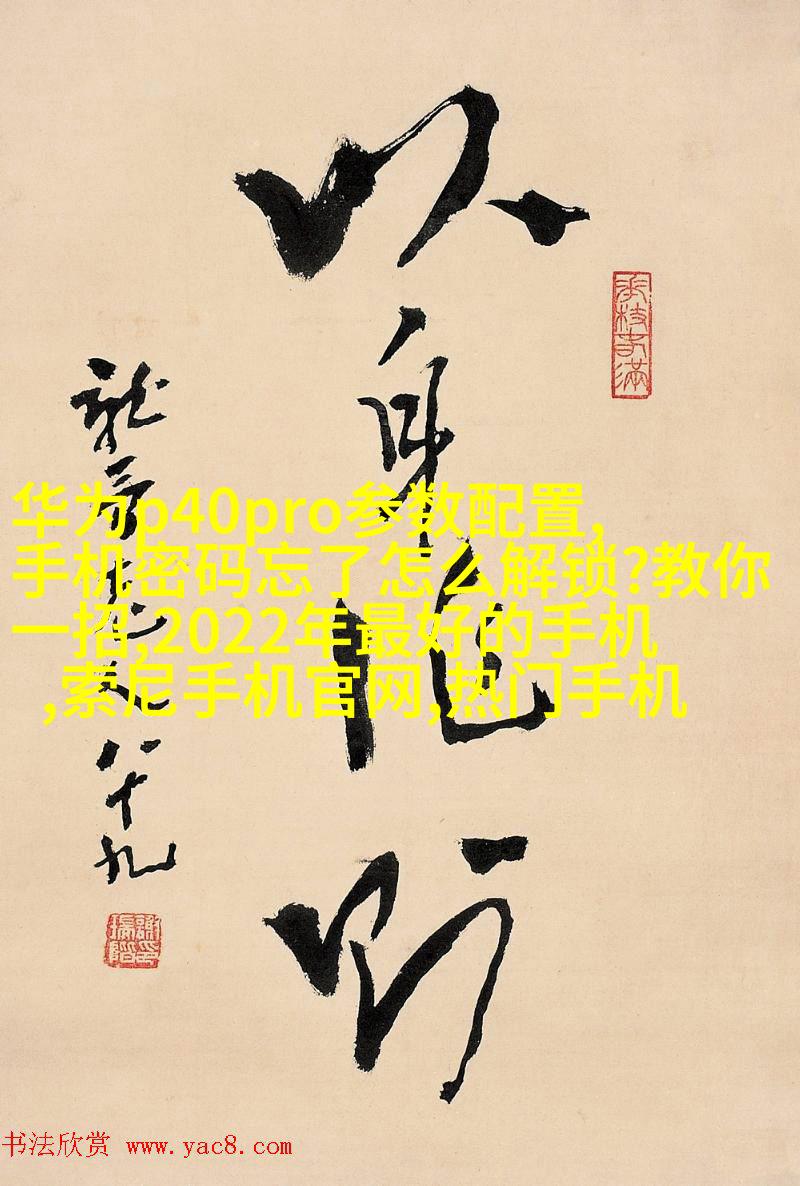 华为p40pro参数配置,
手机密码忘了怎么解锁?教你
一招,2022年最好的手机
,索尼手机官网,热门手机
以身作则
八十九
书法欣赏 www.yac8.com